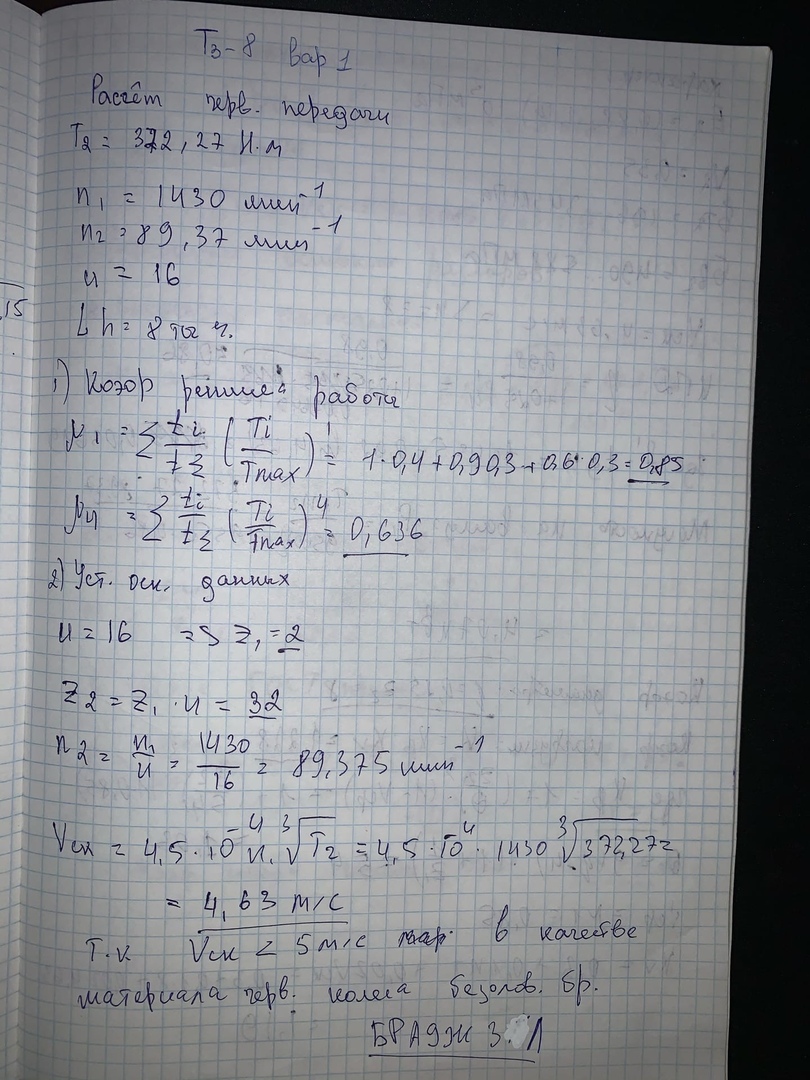 Тз-8 вар 1
Расчёт черв. передачи
T2 = 372,27 Н.м
n1 = 1430 мин⁻¹
n2 = 89,37 мин⁻¹
u = 16
Lh = 8 тыс ч.
15
1) Коэф режима работы
μ1 = Σ ti/tΣ (Ti/Tmax)¹ = 1·0,4+0,9·0,3+0,6·0,3=0,85
μ4 = Σ ti/tΣ (Ti/Tmax)⁴ = 0,636
2) Уст. осн. данных
u = 16 => Z1 = 2
Z2 = Z1 · u = 32
n2 = n1/u = 1430/16 = 89,375 мин⁻¹
Vск = 4,5·10⁻⁴ n1 ∛T2 = 4,5·10⁻⁴ · 1430 ∛372,27 =
= 4,63 м/с
Т.к Vск < 5 м/с в качестве
материала черв. колеса безолов. бр.
БРА9Ж 3Л